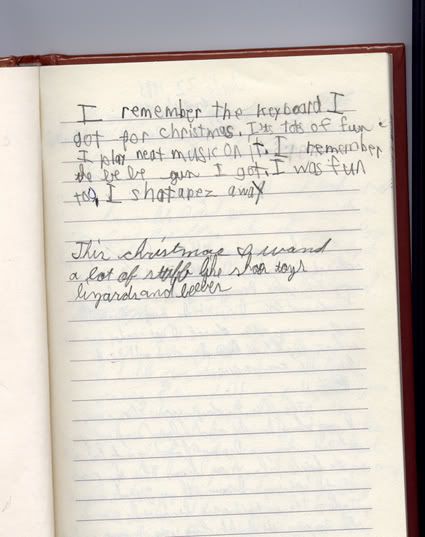 I remember the keyboard I
got for christmas. It's lots of fun
I play neat music on it. I remember
the be be gun I got. I was fun
too, I shot apez away
This christmas I wand
a lot of stuff like star toys
lizards and